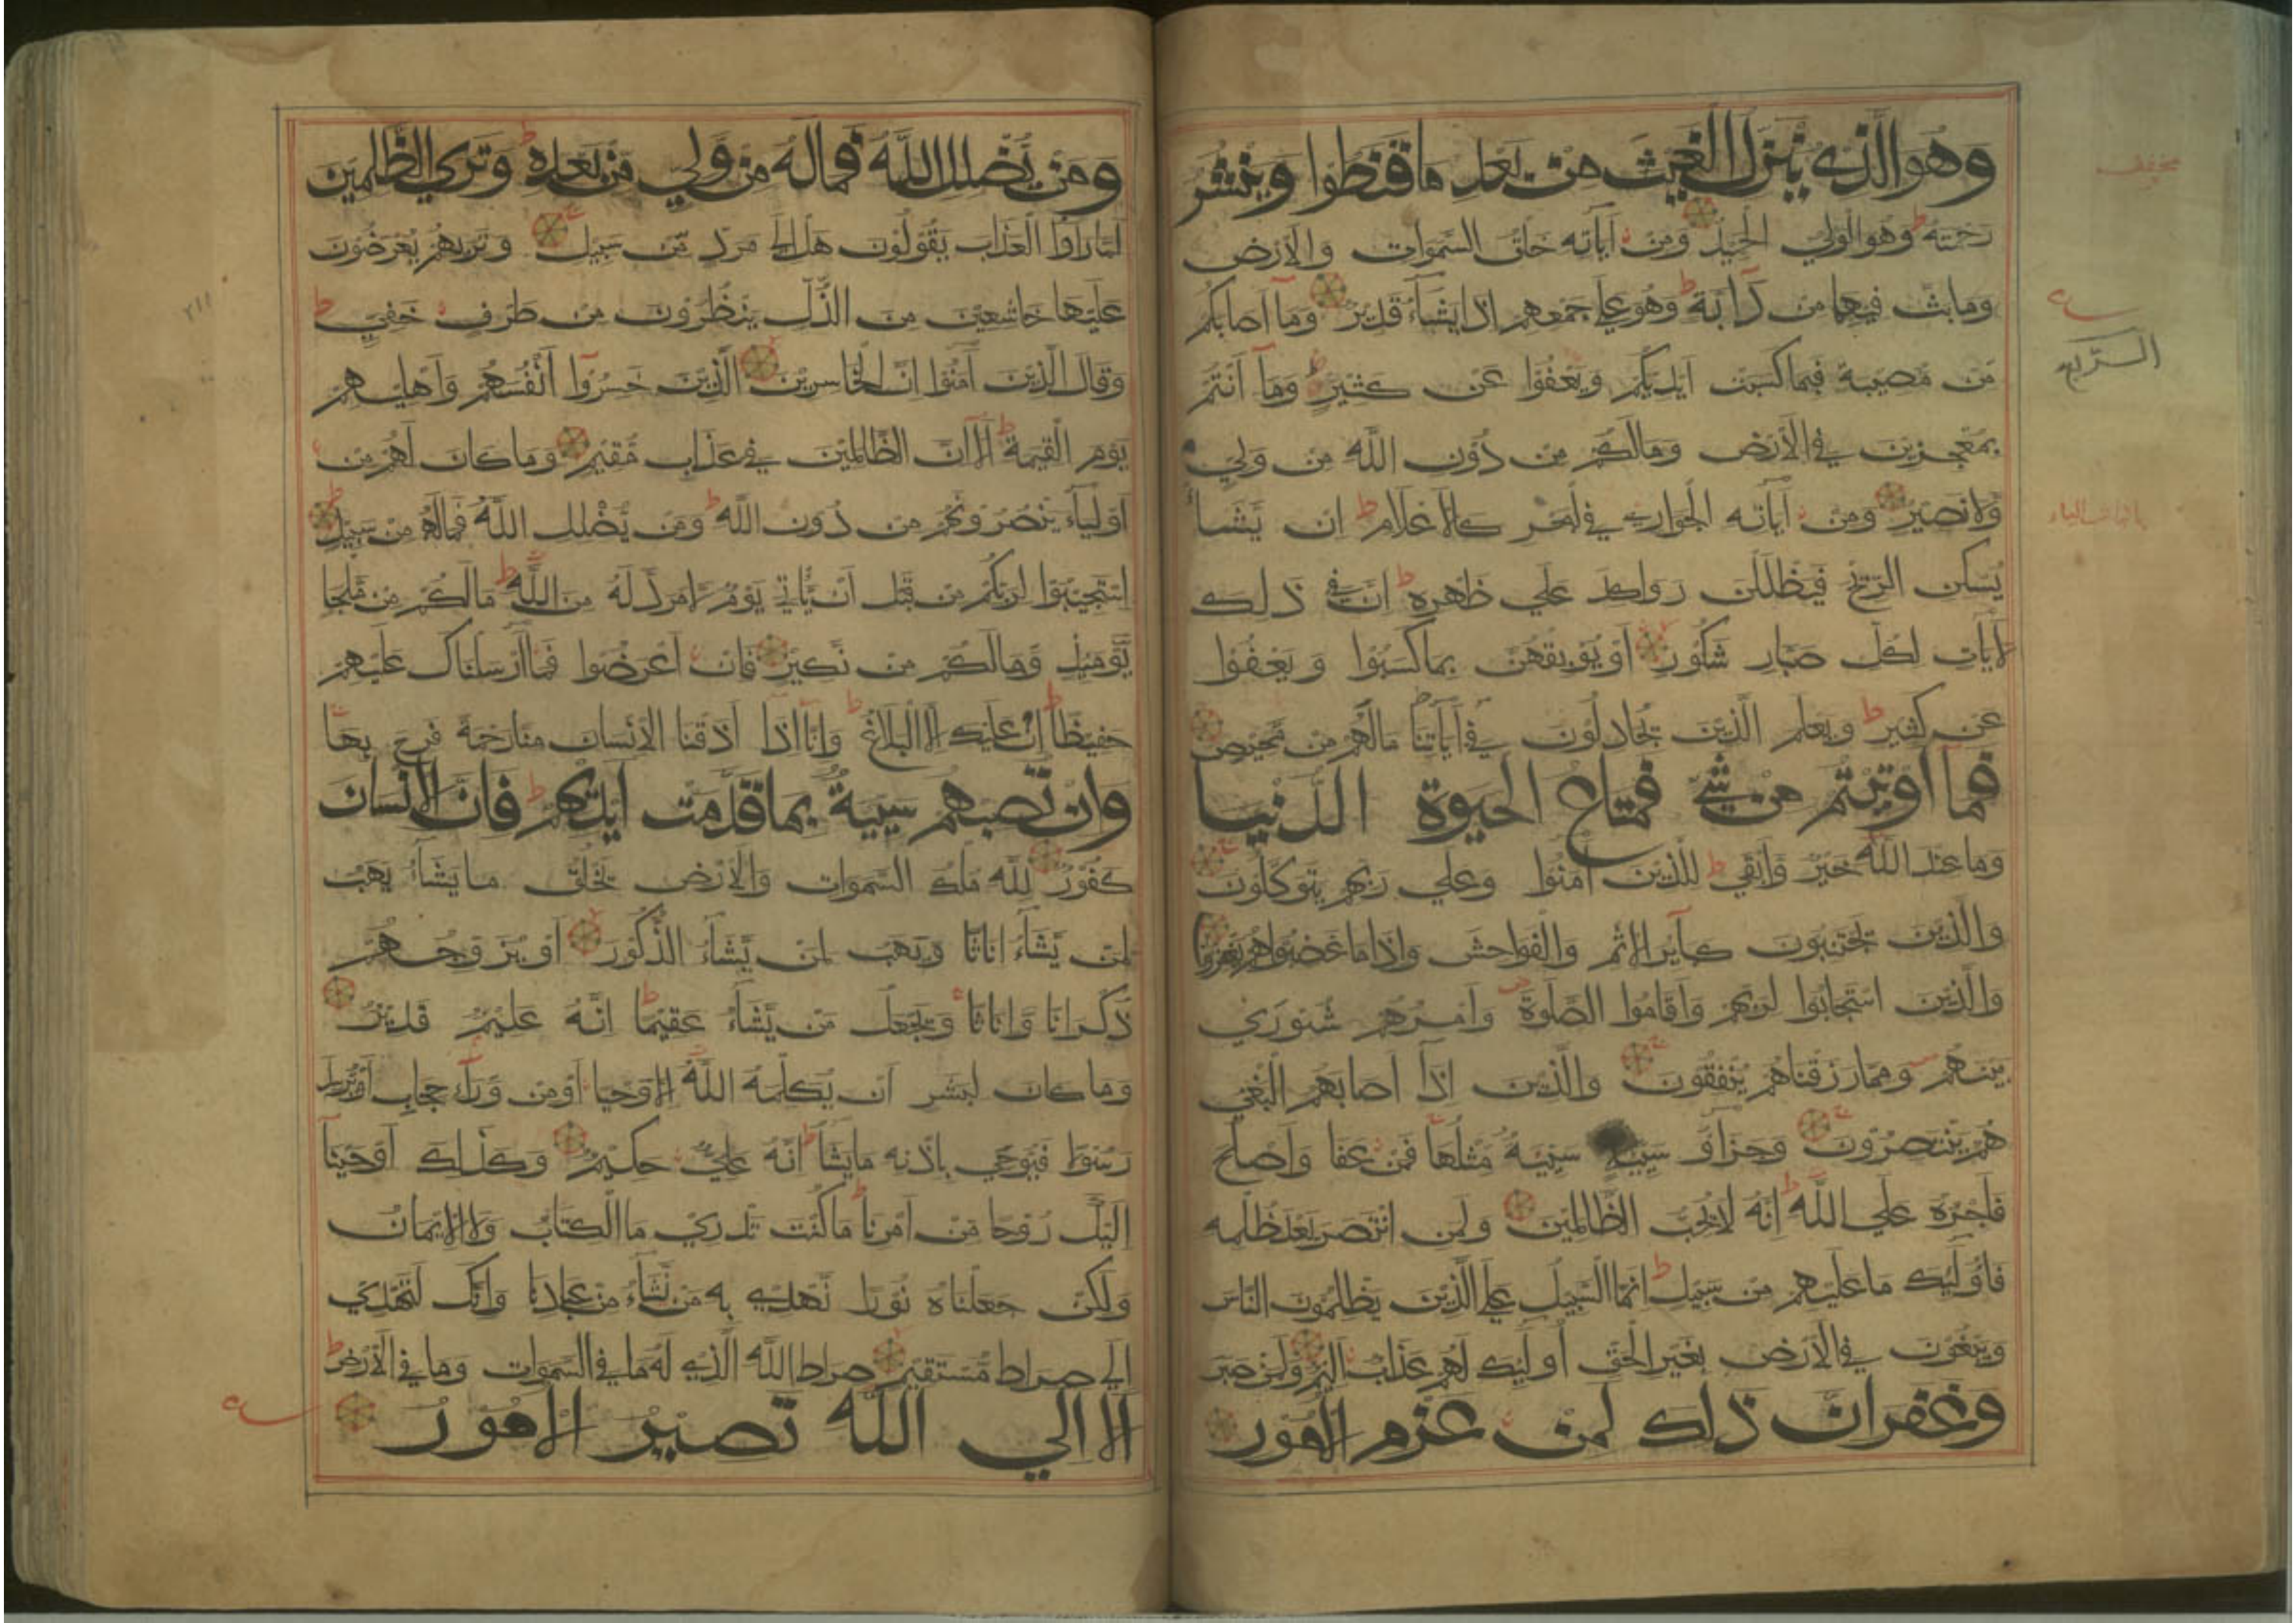 وَهُوَ الَّذِي يُنَزِّلُ الْغَيْثَ مِنْ بَعْدِ مَا قَنَطُوا وَيَنْشُرُ
رَحْمَتَهُ ط وَهُوَ الْوَلِيُّ الْحَمِيدُ وَمِنْ آيَاتِهِ خَلْقُ السَّمَوَاتِ وَالْأَرْضِ
وَمَا بَثَّ فِيهِمَا مِنْ دَابَّةٍ ط وَهُوَ عَلَى جَمْعِهِمْ إِذَا يَشَاءُ قَدِيرٌ وَمَا أَصَابَكُمْ
مِنْ مُصِيبَةٍ فَبِمَا كَسَبَتْ أَيْدِيكُمْ وَيَعْفُوا عَنْ كَثِيرٍ ط وَمَا أَنْتُمْ
بِمُعْجِزِينَ فِي الْأَرْضِ وَمَا لَكُمْ مِنْ دُونِ اللَّهِ مِنْ وَلِيٍّ
وَلَا نَصِيرٍ وَمِنْ آيَاتِهِ الْجَوَارِي فِي الْبَحْرِ كَالْأَعْلَامِ ط إِنْ يَشَأْ
يُسْكِنِ الرِّيحَ فَيَظْلَلْنَ رَوَاكِدَ عَلَي ظَهْرِهِ ط إِنَّ فِي ذَلِكَ
لَآيَاتٍ لِكُلِّ صَبَّارٍ شَكُورٍ أَوْ يُوبِقْهُنَّ بِمَا كَسَبُوا وَيَعْفُوا
عَنْ كَثِيرٍ ط وَيَعْلَمَ الَّذِينَ يُجَادِلُونَ فِي آيَاتِنَا ط مَا لَهُمْ مِنْ مَحِيصٍ
فَمَا أُوتِيتُمْ مِنْ شَيْءٍ فَمَتَاعُ الْحَيَوةِ الدُّنْيَا
وَمَا عِنْدَ اللَّهِ خَيْرٌ وَأَبْقَي ط لِلَّذِينَ آمَنُوا وَعَلَي رَبِّهِمْ يَتَوَكَّلُونَ
وَالَّذِينَ يَجْتَنِبُونَ كَبَائِرَ الْإِثْمِ وَالْفَوَاحِشَ وَإِذَا مَا غَضِبُوا هُمْ يَغْفِرُونَ
وَالَّذِينَ اسْتَجَابُوا لِرَبِّهِمْ وَأَقَامُوا الصَّلَوةَ وَأَمْرُهُمْ شُورَي
بَيْنَهُمْ وَمِمَّا رَزَقْنَاهُمْ يُنْفِقُونَ وَالَّذِينَ إِذَا أَصَابَهُمُ الْبَغْيُ
هُمْ يَنْتَصِرُونَ وَجَزَاؤُ سَيِّئَةٍ سَيِّئَةٌ مِثْلُهَا فَمَنْ عَفَا وَأَصْلَحَ
فَأَجْرُهُ عَلَي اللَّهِ ط إِنَّهُ لَا يُحِبُّ الظَّالِمِينَ وَلَمَنِ انْتَصَرَ بَعْدَ ظُلْمِهِ
فَأُولَئِكَ مَا عَلَيْهِمْ مِنْ سَبِيلٍ ط إِنَّمَا السَّبِيلُ عَلَي الَّذِينَ يَظْلِمُونَ النَّاسَ
وَيَبْغُونَ فِي الْأَرْضِ بِغَيْرِ الْحَقِّ أُولَئِكَ لَهُمْ عَذَابٌ أَلِيمٌ وَلَمَنْ صَبَرَ
وَغَفَرَ إِنَّ ذَلِكَ لَمِنْ عَزْمِ الْأُمُورِ
وَمَنْ يُضْلِلِ اللَّهُ فَمَا لَهُ مِنْ وَلِيٍّ مِنْ بَعْدِهِ ط وَتَرَي الظَّلِمِينَ
لَمَّا رَأَوُا الْعَذَابَ يَقُولُونَ هَلْ إِلَي مَرَدٍّ مِنْ سَبِيلٍ وَتَرَيهُمْ يُعْرَضُونَ
عَلَيْهَا خَاشِعِينَ مِنَ الذُّلِّ يَنْظُرُونَ مِنْ طَرْفٍ خَفِيٍّ ط
وَقَالَ الَّذِينَ آمَنُوا إِنَّ الْخَاسِرِينَ الَّذِينَ خَسِرُوا أَنْفُسَهُمْ وَأَهْلِيهِمْ
يَوْمَ الْقِيَمَةِ ط أَلَا إِنَّ الظَّالِمِينَ فِي عَذَابٍ مُقِيمٍ وَمَا كَانَ لَهُمْ مِنْ
أَوْلِيَاءَ يَنْصُرُونَهُمْ مِنْ دُونِ اللَّهِ ط وَمَنْ يُضْلِلِ اللَّهُ فَمَا لَهُ مِنْ سَبِيلٍ ط
اسْتَجِيبُوا لِرَبِّكُمْ مِنْ قَبْلِ أَنْ يَأْتِيَ يَوْمٌ لَا مَرَدَّ لَهُ مِنَ اللَّهِ ط مَا لَكُمْ مِنْ مَلْجَإٍ
يَوْمَئِذٍ وَمَا لَكُمْ مِنْ نَكِيرٍ فَإِنْ أَعْرَضُوا فَمَا أَرْسَلْنَاكَ عَلَيْهِمْ
حَفِيظًا ط إِنْ عَلَيْكَ إِلَّا الْبَلَاغُ ط وَإِنَّا إِذَا أَذَقْنَا الْإِنْسَانَ مِنَّا رَحْمَةً فَرِحَ بِهَا
وَإِنْ تُصِبْهُمْ سَيِّئَةٌ بِمَا قَدَّمَتْ أَيْدِيهِمْ ط فَإِنَّ الْإِنْسَانَ
كَفُورٌ لِلَّهِ مُلْكُ السَّمَوَاتِ وَالْأَرْضِ يَخْلُقُ مَا يَشَاءُ يَهَبُ
لِمَنْ يَشَاءُ إِنَاثًا وَيَهَبُ لِمَنْ يَشَاءُ الذُّكُورَ أَوْ يُزَوِّجُهُمْ
ذُكْرَانًا وَإِنَاثًا وَيَجْعَلُ مَنْ يَشَاءُ عَقِيمًا ط إِنَّهُ عَلِيمٌ قَدِيرٌ
وَمَا كَانَ لِبَشَرٍ أَنْ يُكَلِّمَهُ اللَّهُ إِلَّا وَحْيًا أَوْ مِنْ وَرَاءِ حِجَابٍ أَوْ يُرْسِلَ
رَسُولًا فَيُوحِيَ بِإِذْنِهِ مَا يَشَاءُ ط إِنَّهُ عَلِيٌّ حَكِيمٌ وَكَذَلِكَ أَوْحَيْنَا
إِلَيْكَ رُوحًا مِنْ أَمْرِنَا ط مَا كُنْتَ تَدْرِي مَا الْكِتَابُ وَلَا الْإِيمَانُ
وَلَكِنْ جَعَلْنَاهُ نُورًا نَهْدِي بِهِ مَنْ نَشَاءُ مِنْ عِبَادِنَا وَإِنَّكَ لَتَهْدِي
إِلَي صِرَاطٍ مُسْتَقِيمٍ صِرَاطِ اللَّهِ الَّذِي لَهُ مَا فِي السَّمَوَاتِ وَمَا فِي الْأَرْضِ ط
أَلَا إِلَي اللَّهِ تَصِيرُ الْأُمُورُ